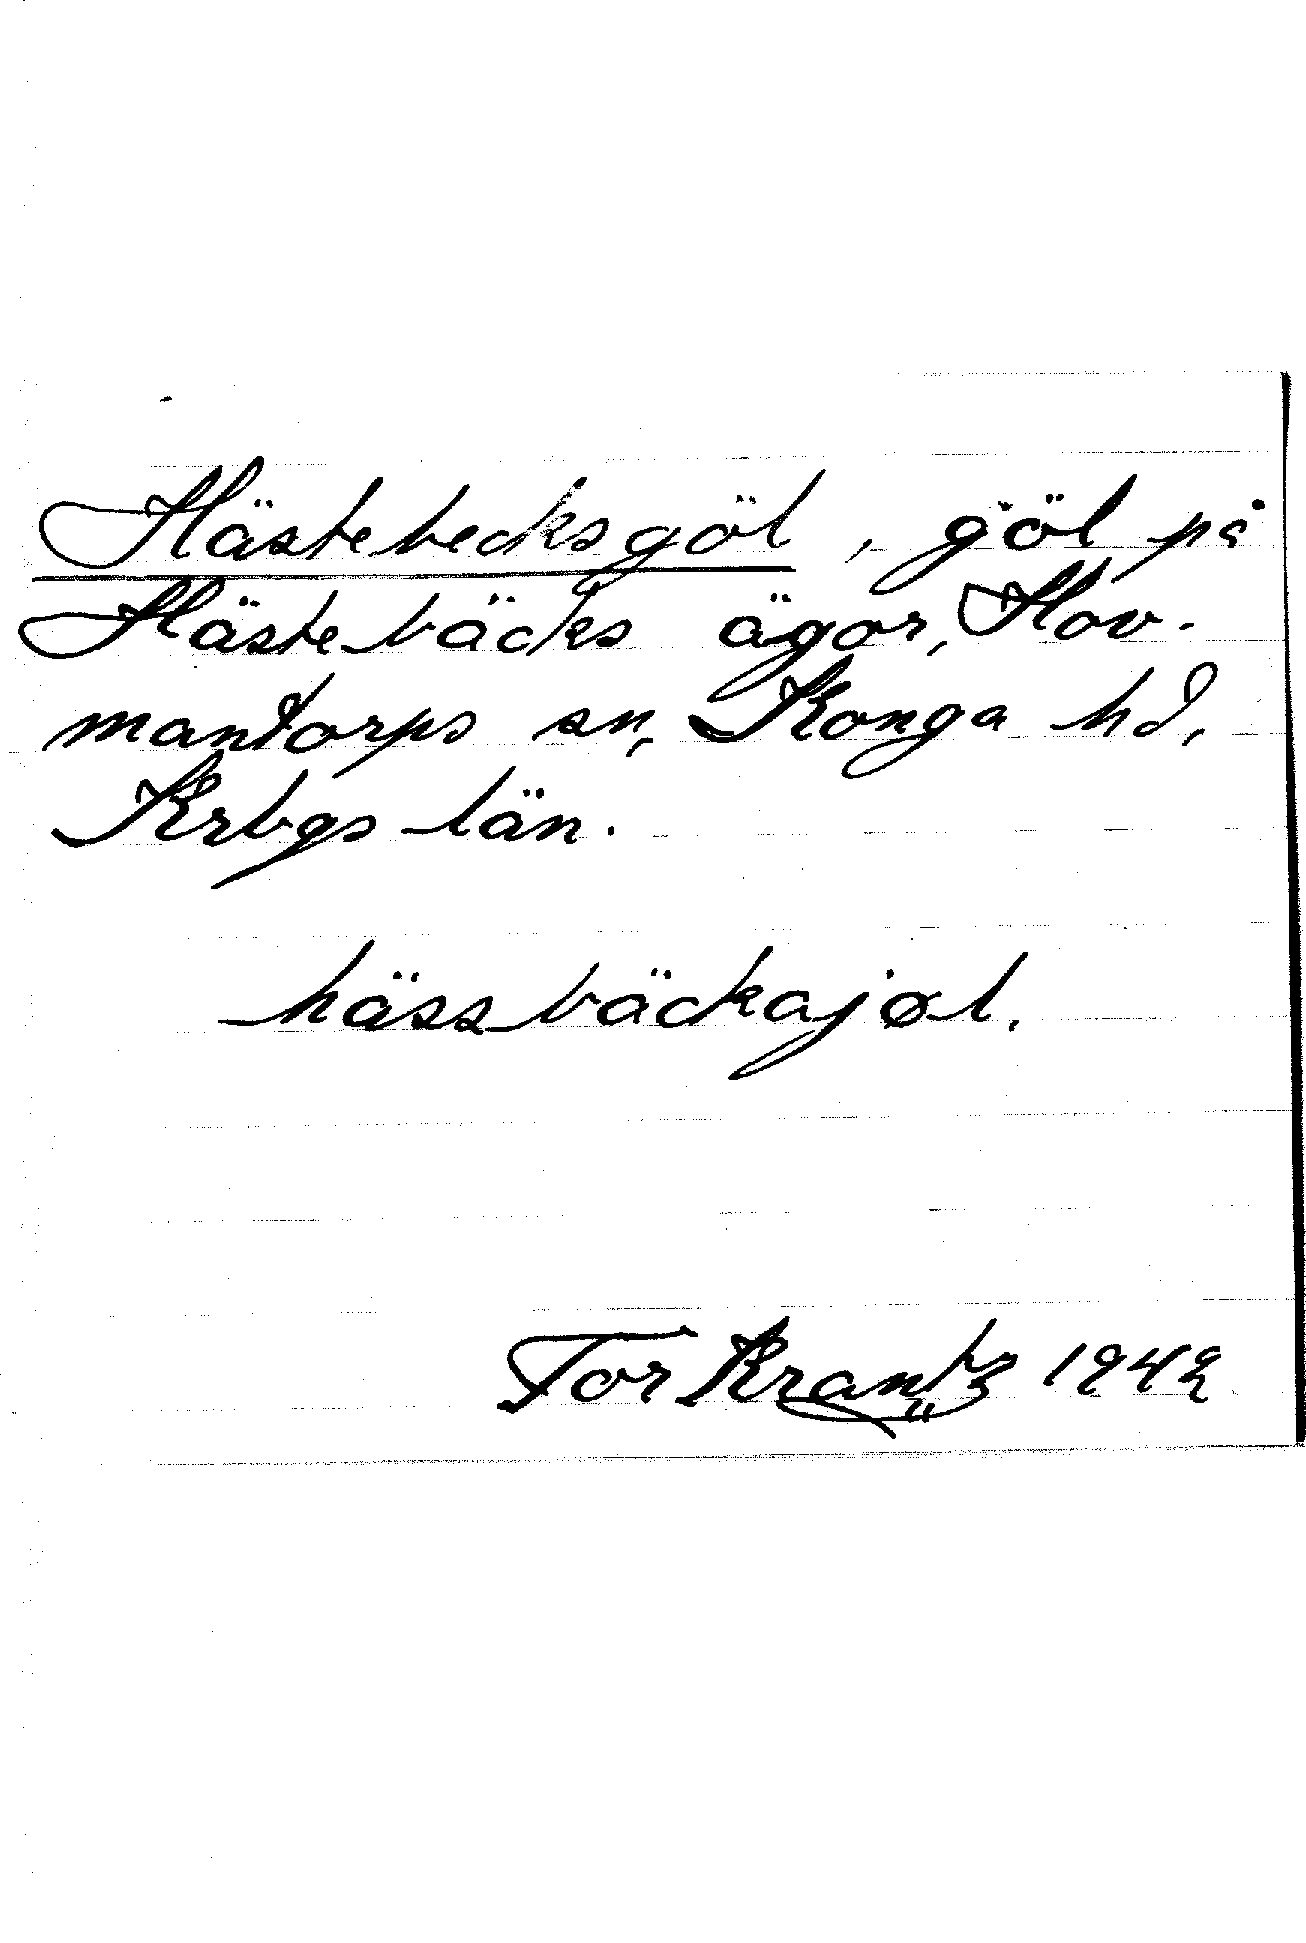 Hästebecksgöl, göl på
Hästebäcks ägor, Hov-
mantorps sn, Konga hd,
Krbgs län.
hässbäckajøl.
Tor Krantz 1942